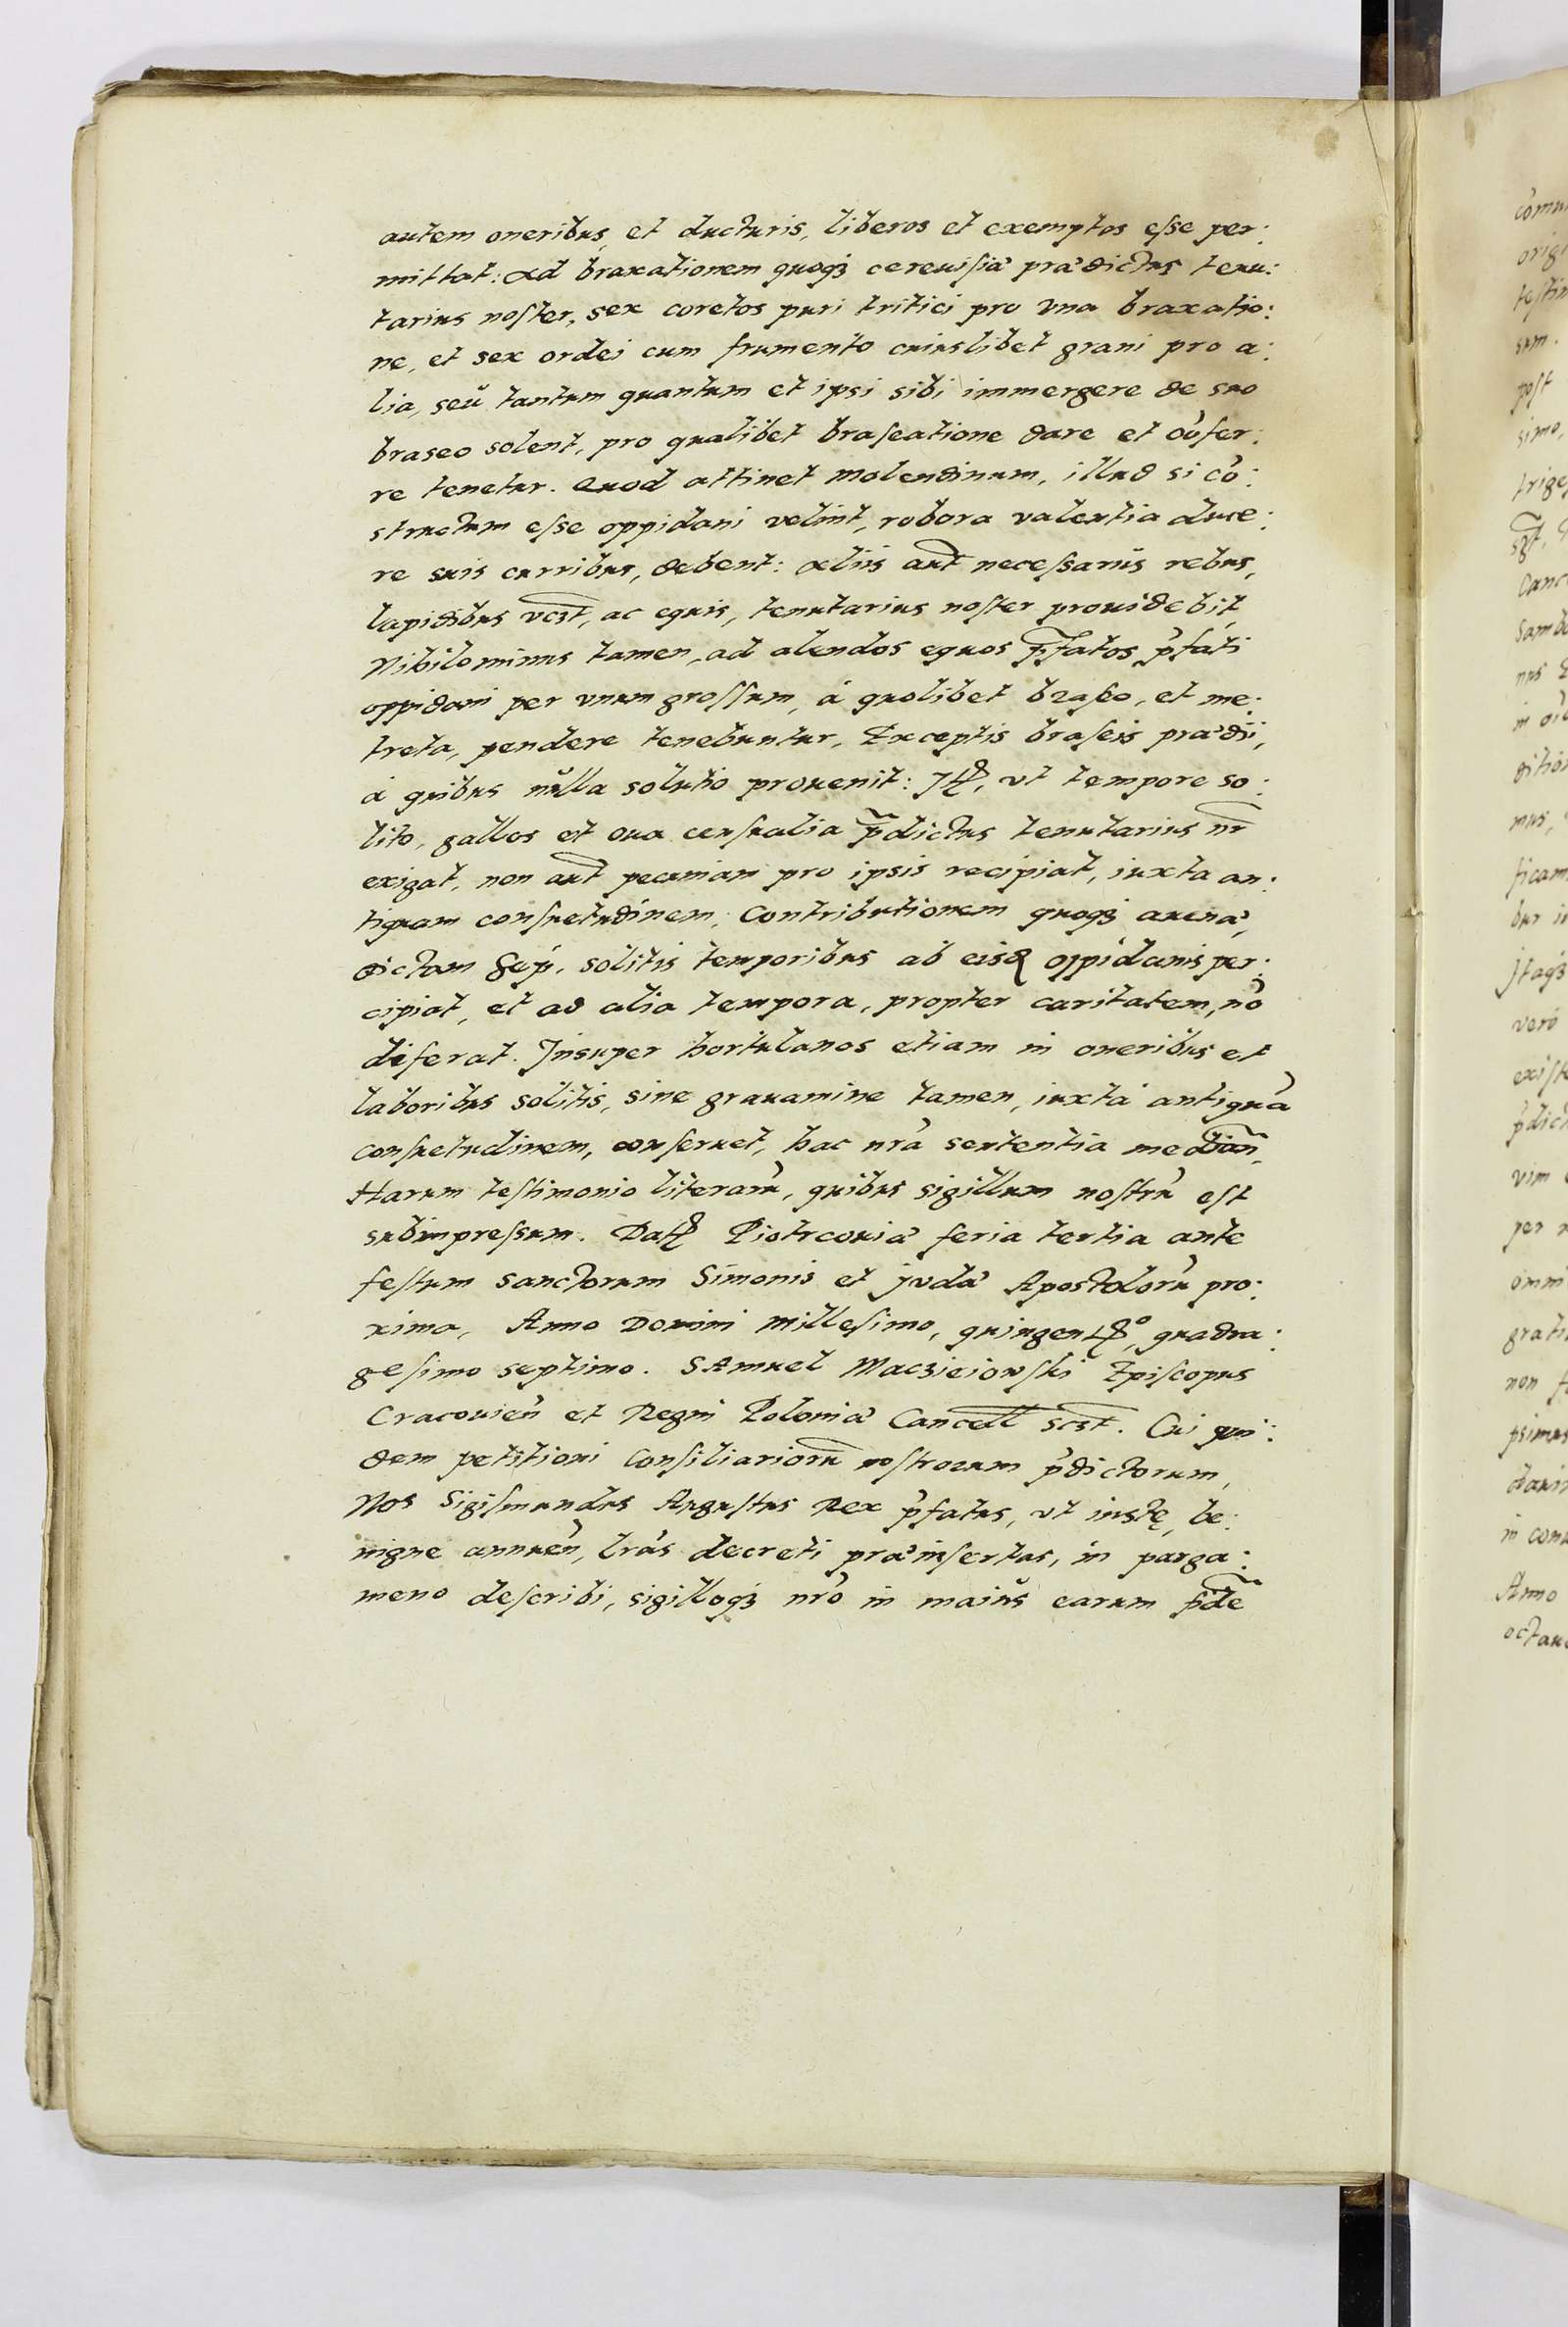 autem oneribus, et ducturis, liberos et exemptos esse per:
mittat: Ad braxationem quoq3 cereuisiæ prædictus tenu:
tarius noster, sex coretos puri tritici pro vna braxatio:
ne, et sex ordei cum frumento cuiuslibet grani pro a:
lia, seu tantum quantum et ipsi sibi immergere de suo
braseo solent, pro qualibet braseatione dare et cōfer:
re tenetur. Quod attinet Molendinum, illud si cō:
structum esse oppidani velint, robora valentia duce:
re suis curribus, debent: Aliis aut̄ necessariis rebus,
lapidibus vc3t, ac equis, tenutarius noster prouidebit,
Nihilominus tamen, ad alendos equos p̄fatos p̄fati
oppidani per vnum grossum, á quolibet braseo, et me:
treta, pendere tenebuntur, Exceptis braseis prædii,
á quibus nŭlla solutio prouenit: Jtꝫ, vt tempore so:
lito, gallos et oua censualia p̄dictus tenutarius nr̄
exigat, non aut̄ pecuniam pro ipsis recipiat, iuxta an:
tiquam consuetudinem, Contributionem quoq3 auenæ,
dictam Sep, solitis temporibus ab eisd oppidanis per:
cipiat, et ad alia tempora, propter caritatem, nō
diferat. Jnsuper hortulanos etiam in oneribus et
laboribus solitis, sine grauamine tamen, iuxtá antiquā
consuetudinem, conseruet, hac nrā sententia median̄,
Harum testimonio literarū, quibus sigillum nostrū est
subimpressum. Datꝫ Piotrcouiæ feria tertia ante
festum Sanctorum Simonis et Judæ Apostolorū pro:
xima, Anno Domini Millesimo, quingentꝫº, quadra:
gesimo septimo. SAmuel Mac3ieiowski Episcopus
Cracouien̄ et Regni Poloniæ Cancell sc3t. Cui qui:
dem petitioni Consiliariorū nostrorum p̄dictorum,
Nos Sigismundus Augustus Rex p̄fatus, vt iustę, be:
nigne annuen̄, lrās decreti præinsertas, in parga:
meno describi, sigilloq3 nrō in maius earum fide